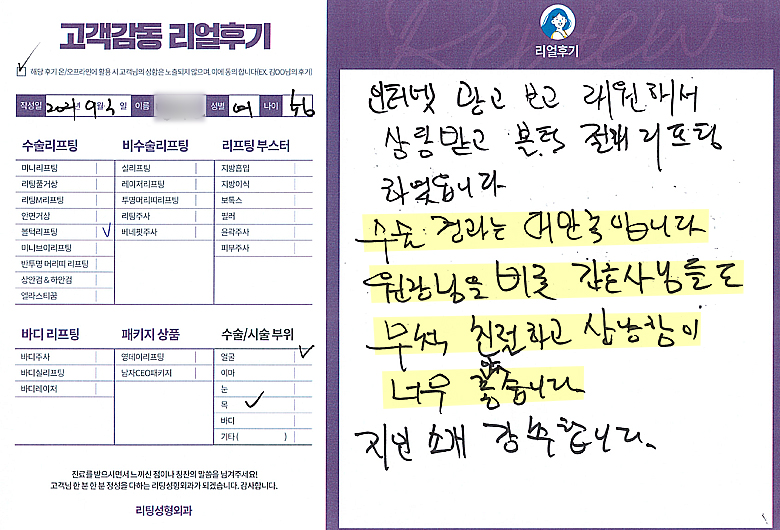 고객감동 리얼후기
해당 후기 온/오프라인에 활용 시 고객님의 성함은 노출되지 않으며, 이에 동의 합니다(EX. 김OO님의 후기)
작성일 2021년 9월 3일 이름 성별 여 나이
수술리프팅
미니리프팅
리팅품거상
리팅M리프팅
안면거상
볼턱리프팅
미니브이리프팅
반투명 머리띠 리프팅
상안검 & 하안검
엘라스티꿈
비수술리프팅
실리프팅
레이저리프팅
투명머리띠리프팅
리팅주사
베네핏주사
리프팅 부스터
지방흡입
지방이식
보톡스
필러
윤곽주사
피부주사
바디 리프팅
바디주사
바디실리프팅
바디레이저
패키지 상품
영데이리프팅
남자CEO패키지
수술/시술 부위
얼굴
이마
눈
목
바디
기타( )
진료를 받으시면서 느끼신 점이나 칭찬의 말씀을 남겨주세요!
고객님 한 분 한 분 정성을 다하는 리팅성형외과가 되겠습니다. 감사합니다.
리팅성형외과
Review
리얼후기
인터넷 광고 보고 래원하셔
상담받고 볼턱 절개 리프팅
하였읍니다
수술 결과는 대만족입니다
원장님을 비롯 간호사님들도
무척 친절하고 상냥함이
너무 좋습니다
지인 소개 강추합니다.